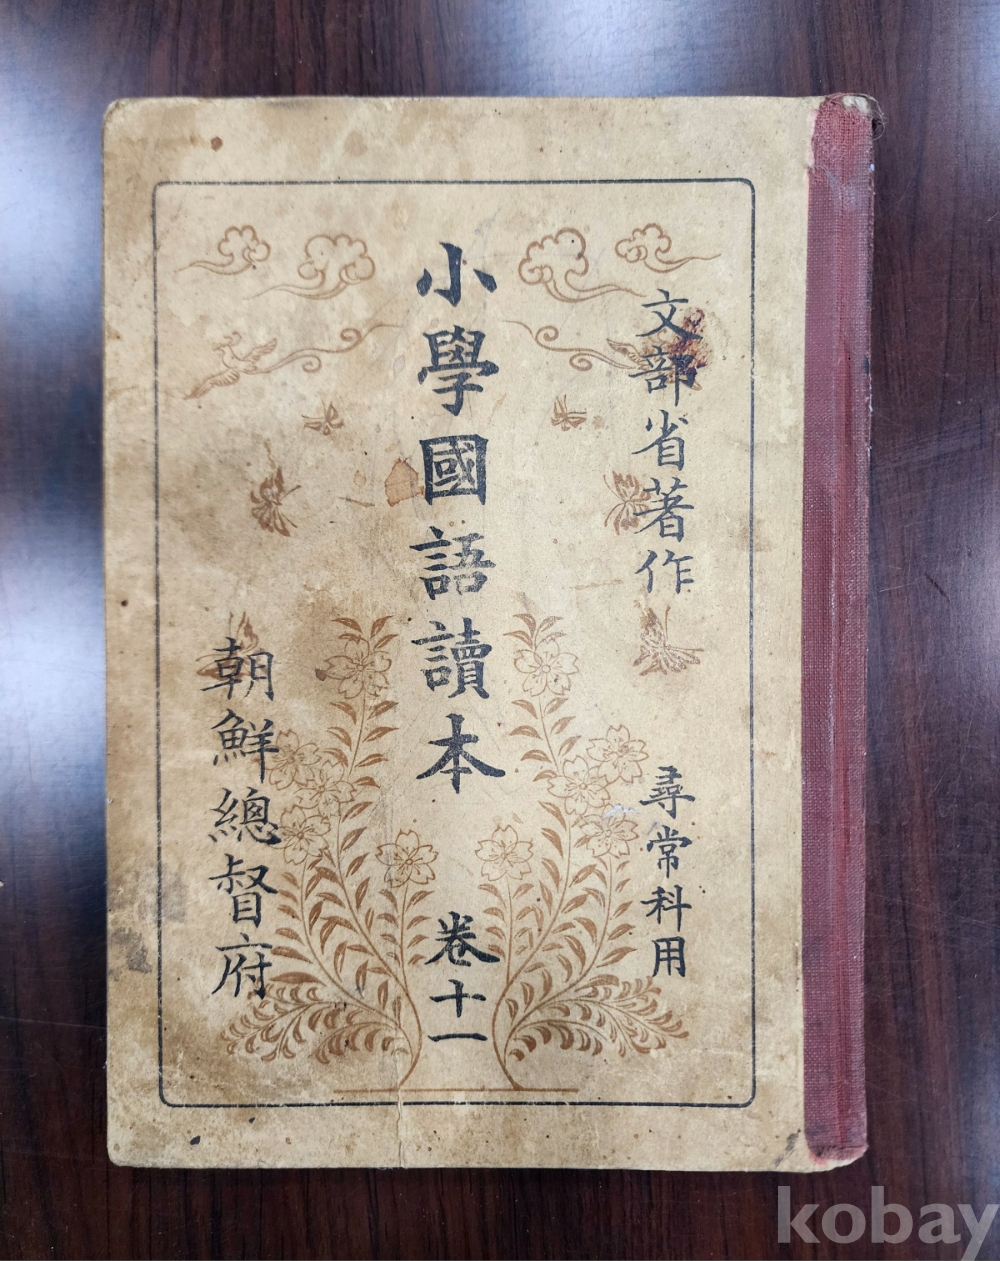 文部省著作
尋常科用
小學國語讀本
卷十一
朝鮮總督府
kobay